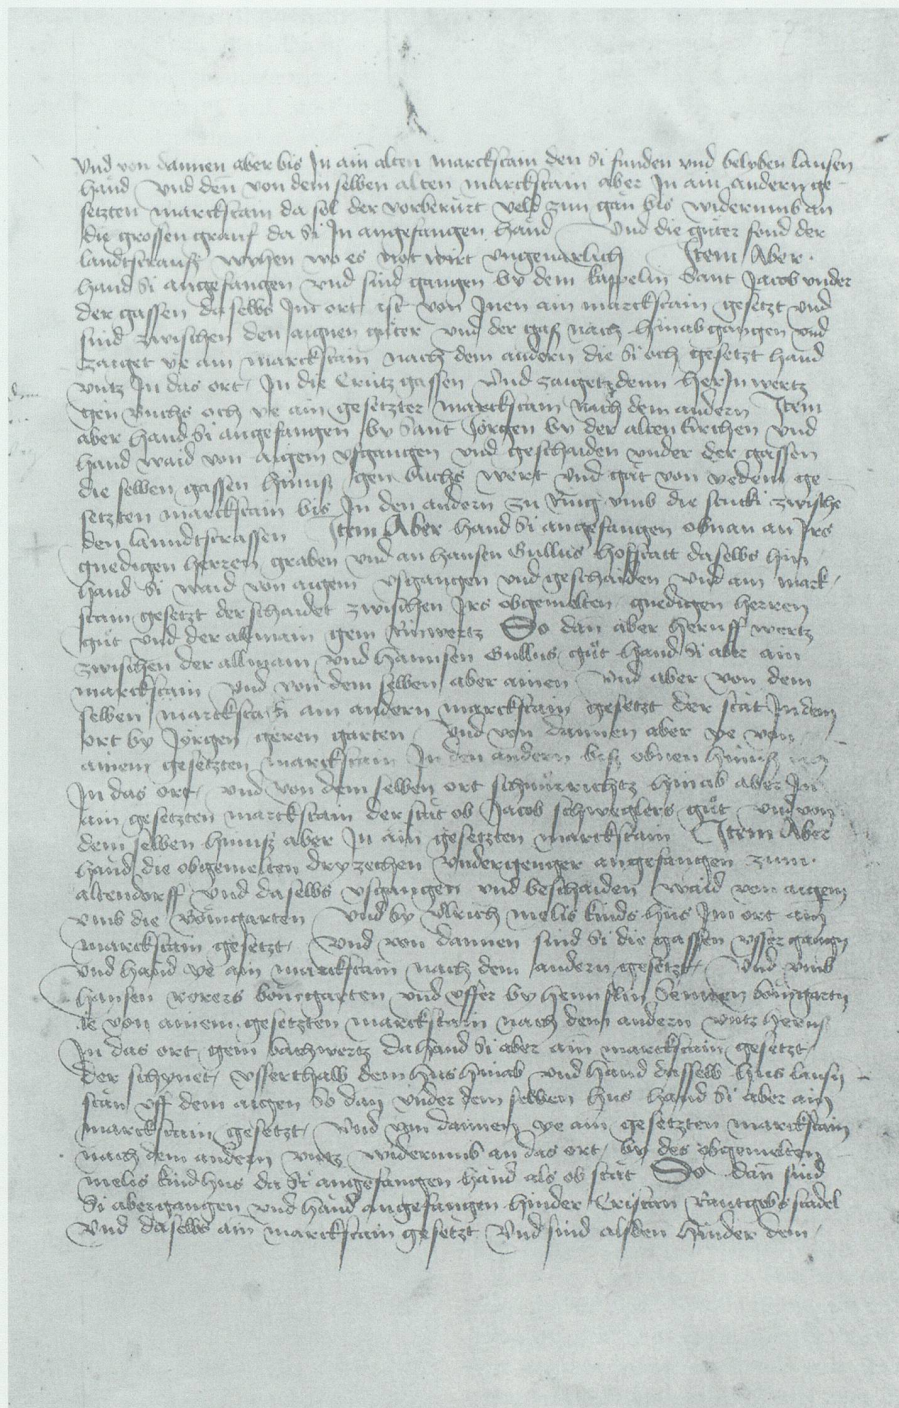 Vnd von dannen aber bis In ain alten marckstain den si funden vnd belyben laussen
hand Vnd den von dem selben alten marckstain aber In ain andern ge-
setzten marckstain da sol der vorberürt veld zun gan bis widerumb an
die grossen grauf da si In angefangen hand Vnd die güter sond der
landtstrauß wyhen wo es not wirt vngeuarlich Item Aber
hand si angefangen vnd sind gangen by dem kappelin Sant Jacob vnder
der gassen daselbs Im ort ist von Inen ain marckstain gesetzt vnd
sind zwischen den aignen güter vnd der gaß nach hinab gangen vnd
zaiget ye ain marckstain nach dem andern die si och gesetzt hand
vntz In das ort In die Crütz gassen Vnd zaigetz denn her In wertz
gen Buchs och ye ain gesetzter marckstain nach dem andern Item
aber hand si angefangen by Sant Jörgen by der alten kirchen vnd
hand waid von aigem vsgangen vnd geschaiden vnder der gassen
die selben gassen hinuß gen buchs wert vnd gät von yedem ge-
setzten marckstain bis In den andern zu Ring vmb die stucki zwische
den lanndtstrassen Item Aber hand si angefangen obnan an Irs
gnedigen herren graben vnd an hansen Gullus hoffstatt daselbs hin
hand si waid von aigem vsgangen vnd geschaiden vnd ain mark-
stain gesetzt der schaidet zwischen Irs obgemelten gnedigen herren
güt vnd der almain gem Rinwertz So dan aber heruff wertz
zwischen der allmain vnd hannsen Gullus güt hand si aber ain
marckstain vnd von dem selben aber ainen vnd aber von dem
selben marckstain ain andern marckstain gesetzt der stät In dem
ort by Jörgen geren garten Vnd von dannen aber ye von
ainem gesetzten marckstain In den andern biß obnen hinuß
In das ort vnd von dem selben ort schnürrichtz hinab aber In
ain gesetzten marckstain der stät ob Jacob schweglers güt vnd von
dem selben hinuß aber In ain gesetzten marckstain Item Aber
hand die obgemelten dryzechen vndergenger angefangen zum
altendorff vnd daselbs vsgangen vnd beschaiden waid von aigem
vmb die bömgarten Vnd by Vlrich melis kinds hus Im ort ain
marckstain gesetzt Vnd von dannen sind si die gassen vsser gangen
vnd hand ye ain marckstain nach dem andern gesetzt Vnd vmb
hansen rorers bömgarten vnd vsser by hennslin bömgarten
ye von ainem gesetzten marckstain nach dem andern vntz heruß
In das ort gem bachwertz da hand si aber ain marckstain gesetzt
der schynet vsserthalb dem hus hinab vnd hand dasselb hus laussen
stän vff dem aigen So dan vnder dem selben hus hand si aber ain
marckstain gesetzt Vnd von dannen ye ain gesetzten marckstain
nach dem andern vntz widerumb an das ort by des obgemelten
melis kind hus da si angefangen hand als ob stät So dan sind
si aber gangen vnd hand angefangen hinder Cristan Rantgebs stadel
Vnd daselbs ain marckstain gesetzt Vnd sind alsden hinder dem